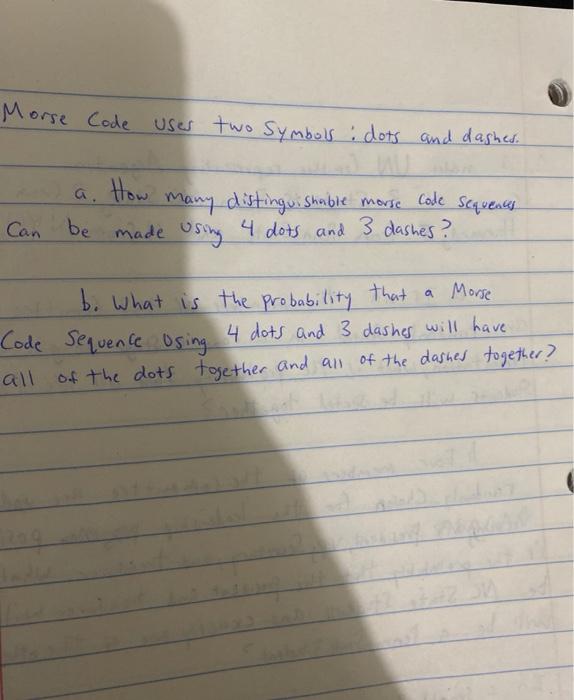 Morse Code uses two Symbols : dots and dashes.
a. How many distinguishable morse code sequences
Can be made using 4 dots and 3 dashes?
b. What is the probability that a Morse
Code Sequence using 4 dots and 3 dashes will have
all of the dots together and all of the dashes together?